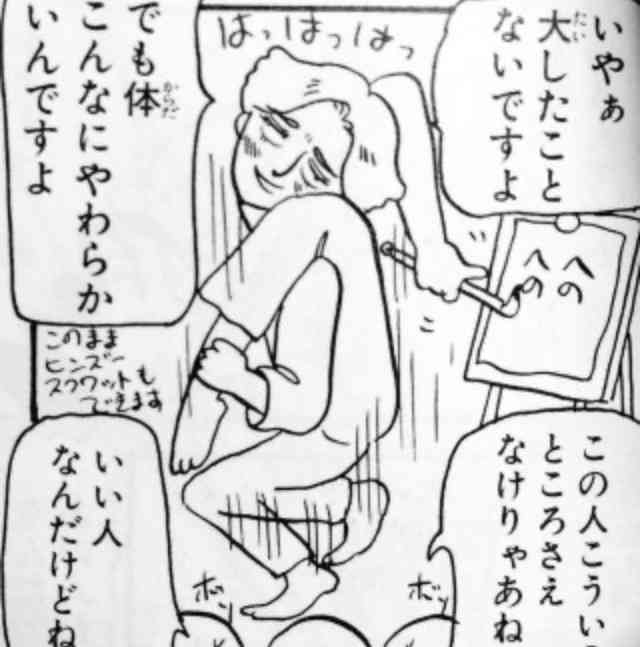 いやぁ
大したこと
ないですよ
たい
はっはっはっ
への
への
でも体
からだ
こんなにやわらか
いんですよ
このまま
ヒンズー
スクワットも
できます
この人こうい
ところさえ
なけりゃあね
ボソッ
ボソッ
いい人
なんだけどね